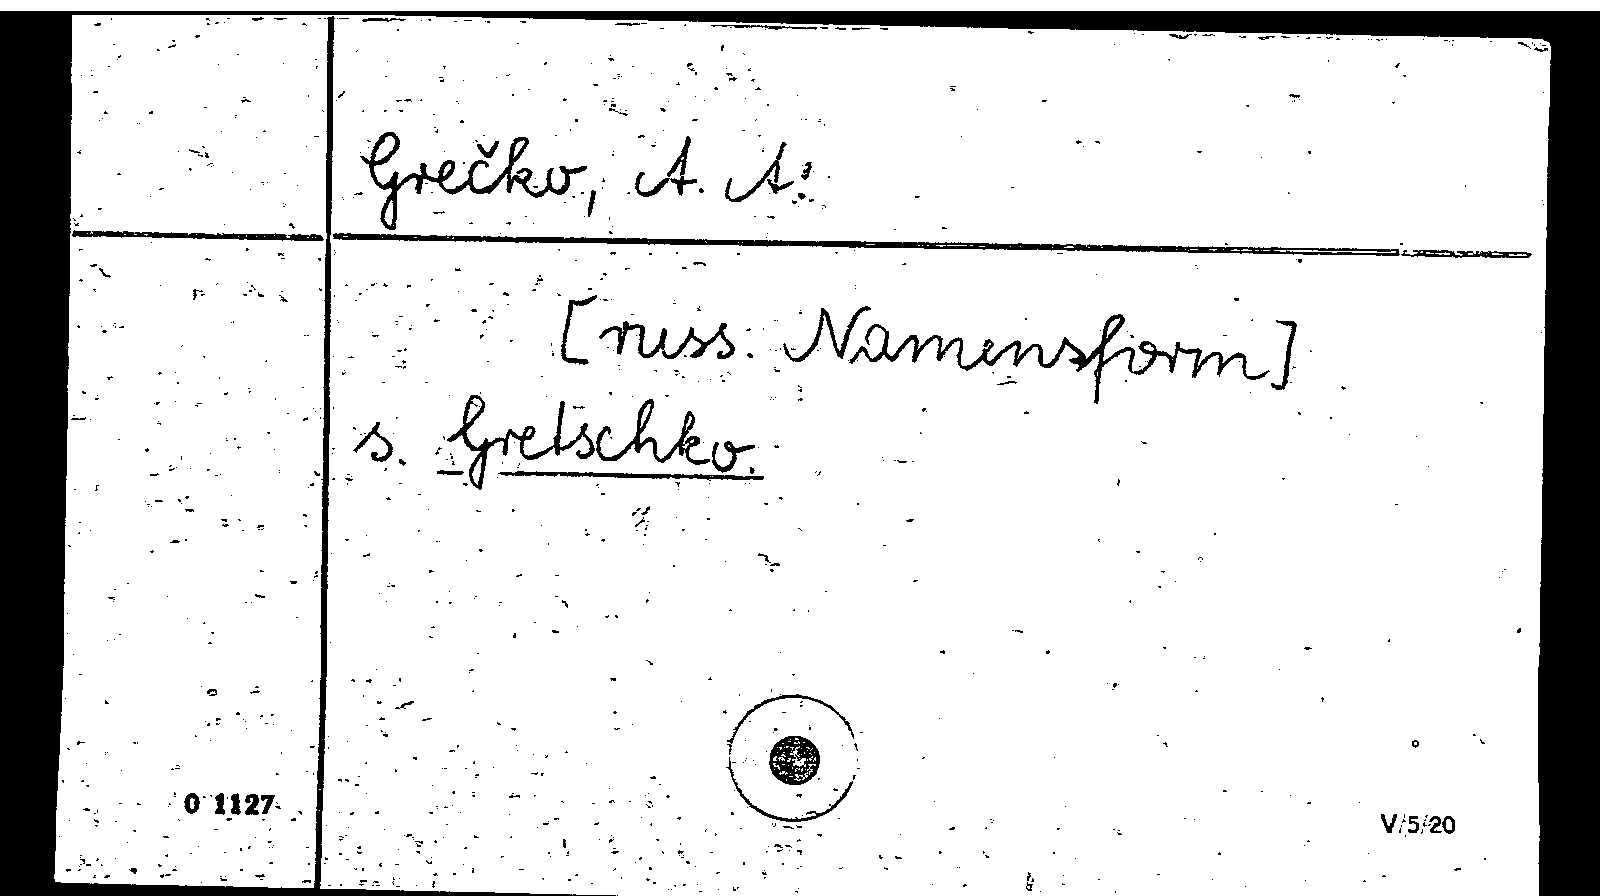 Grečko, A. A:
[russ. Namensform]
s. Gretschko.
0 1127
V/5/20